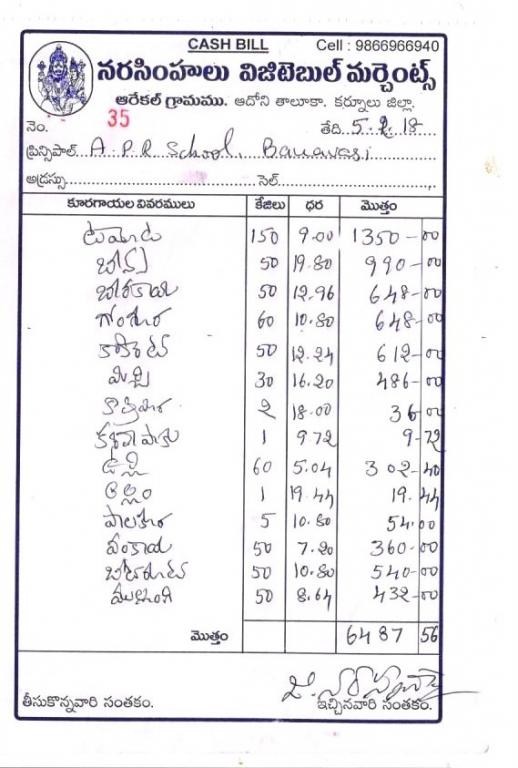 CASH BILL Cell : 9866966940
నరసింహులు విజిటెబుల్ మర్చెంట్స్
ఆరేకల్ గ్రామము. ఆదోని తాలూకా. కర్నూలు జిల్లా.
నెం. 35 తేది 5.2.18
ప్రిన్సిపాల్ A.P.R School, Banavasi
అడ్రస్సు సెల్
కూరగాయల వివరములు కేజీలు ధర మొత్తం
టమోట 150 9.00 1350-00
బీన్స్ 50 19.80 990-00
బీరకాయ 50 12.96 648-00
గోంగూర 60 10.80 648-00
క్యారెట్ 50 12.24 612-00
మిర్చి 30 16.20 486-00
కొత్తిమీర 2 18.00 36 00
కరివేపాకు 1 9.72 9-72
ఉల్లి 60 5.04 302-40
అల్లం 1 19.44 19.44
పాలకూర 5 10.80 54.00
వంకాయ 50 7.20 360-00
బీట్‌రూట్ 50 10.80 540-00
ముల్లంగి 50 8.64 432-00
మొత్తం 6487 56
తీసుకొన్నవారి సంతకం. ఇచ్చినవారి సంతకం.